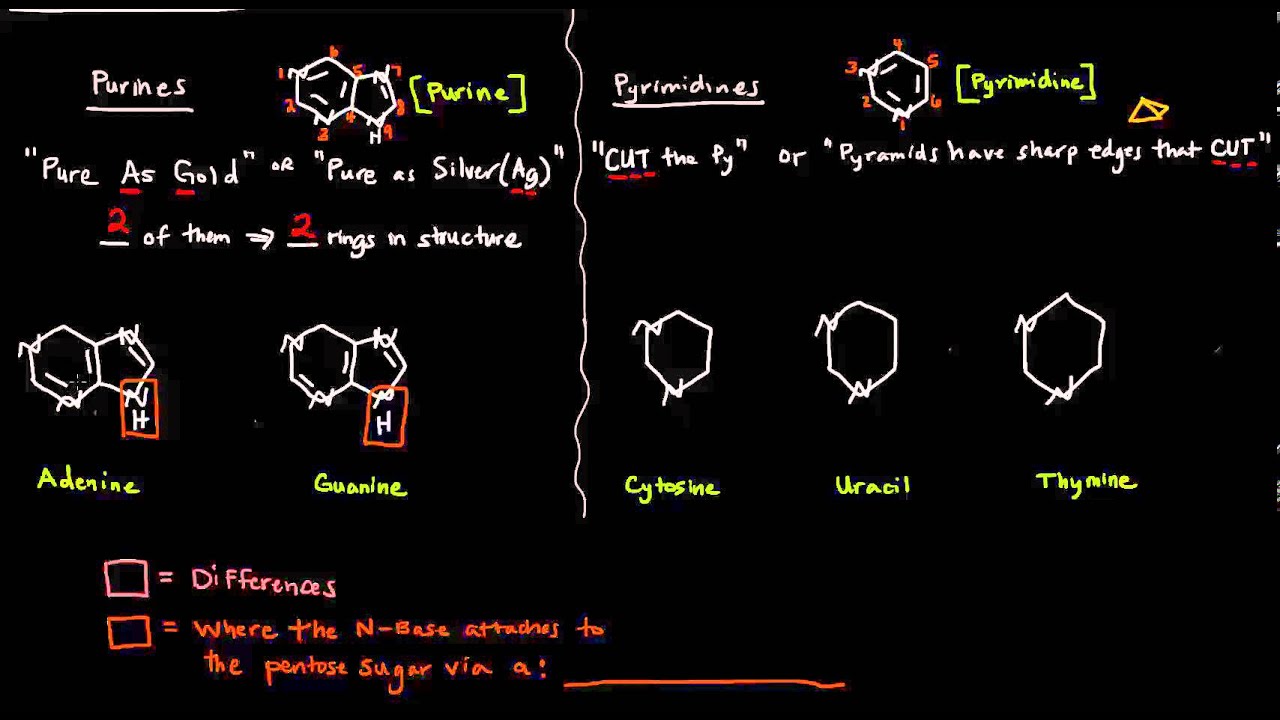 Purines
1
2
3
4
5
6
N
N
N
N
7
8
9
H
[Purine]
"Pure As Gold" OR "Pure as Silver (Ag)"
2 of them ⇒ 2 rings in structure
N
N
N
N
H
Adenine
N
N
N
N
H
Guanine
Pyrimidines
4
3
5
2
6
1
N
N
[Pyrimidine]
"CUT the Py" or "Pyramids have sharp edges that CUT"
N
N
Cytosine
N
N
Uracil
N
N
Thymine
= Differences
= Where the N-Base attaches to
the pentose sugar via a: